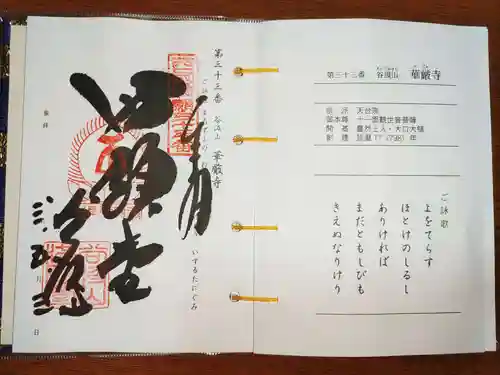 第三十三番 谷汲山 華厳寺
宗派 天台宗
御本尊 十一面観世音菩薩
開基 豊然上人・大口大領
創建 延暦17(798)年
ご詠歌
よをてらす
ほとけのしるし
ありければ
まだともしびも
きえぬなりけり
第三十三番 谷汲山 華厳寺
いずるたにぐみ
奉拝
満願堂
谷汲山
三、五月三日